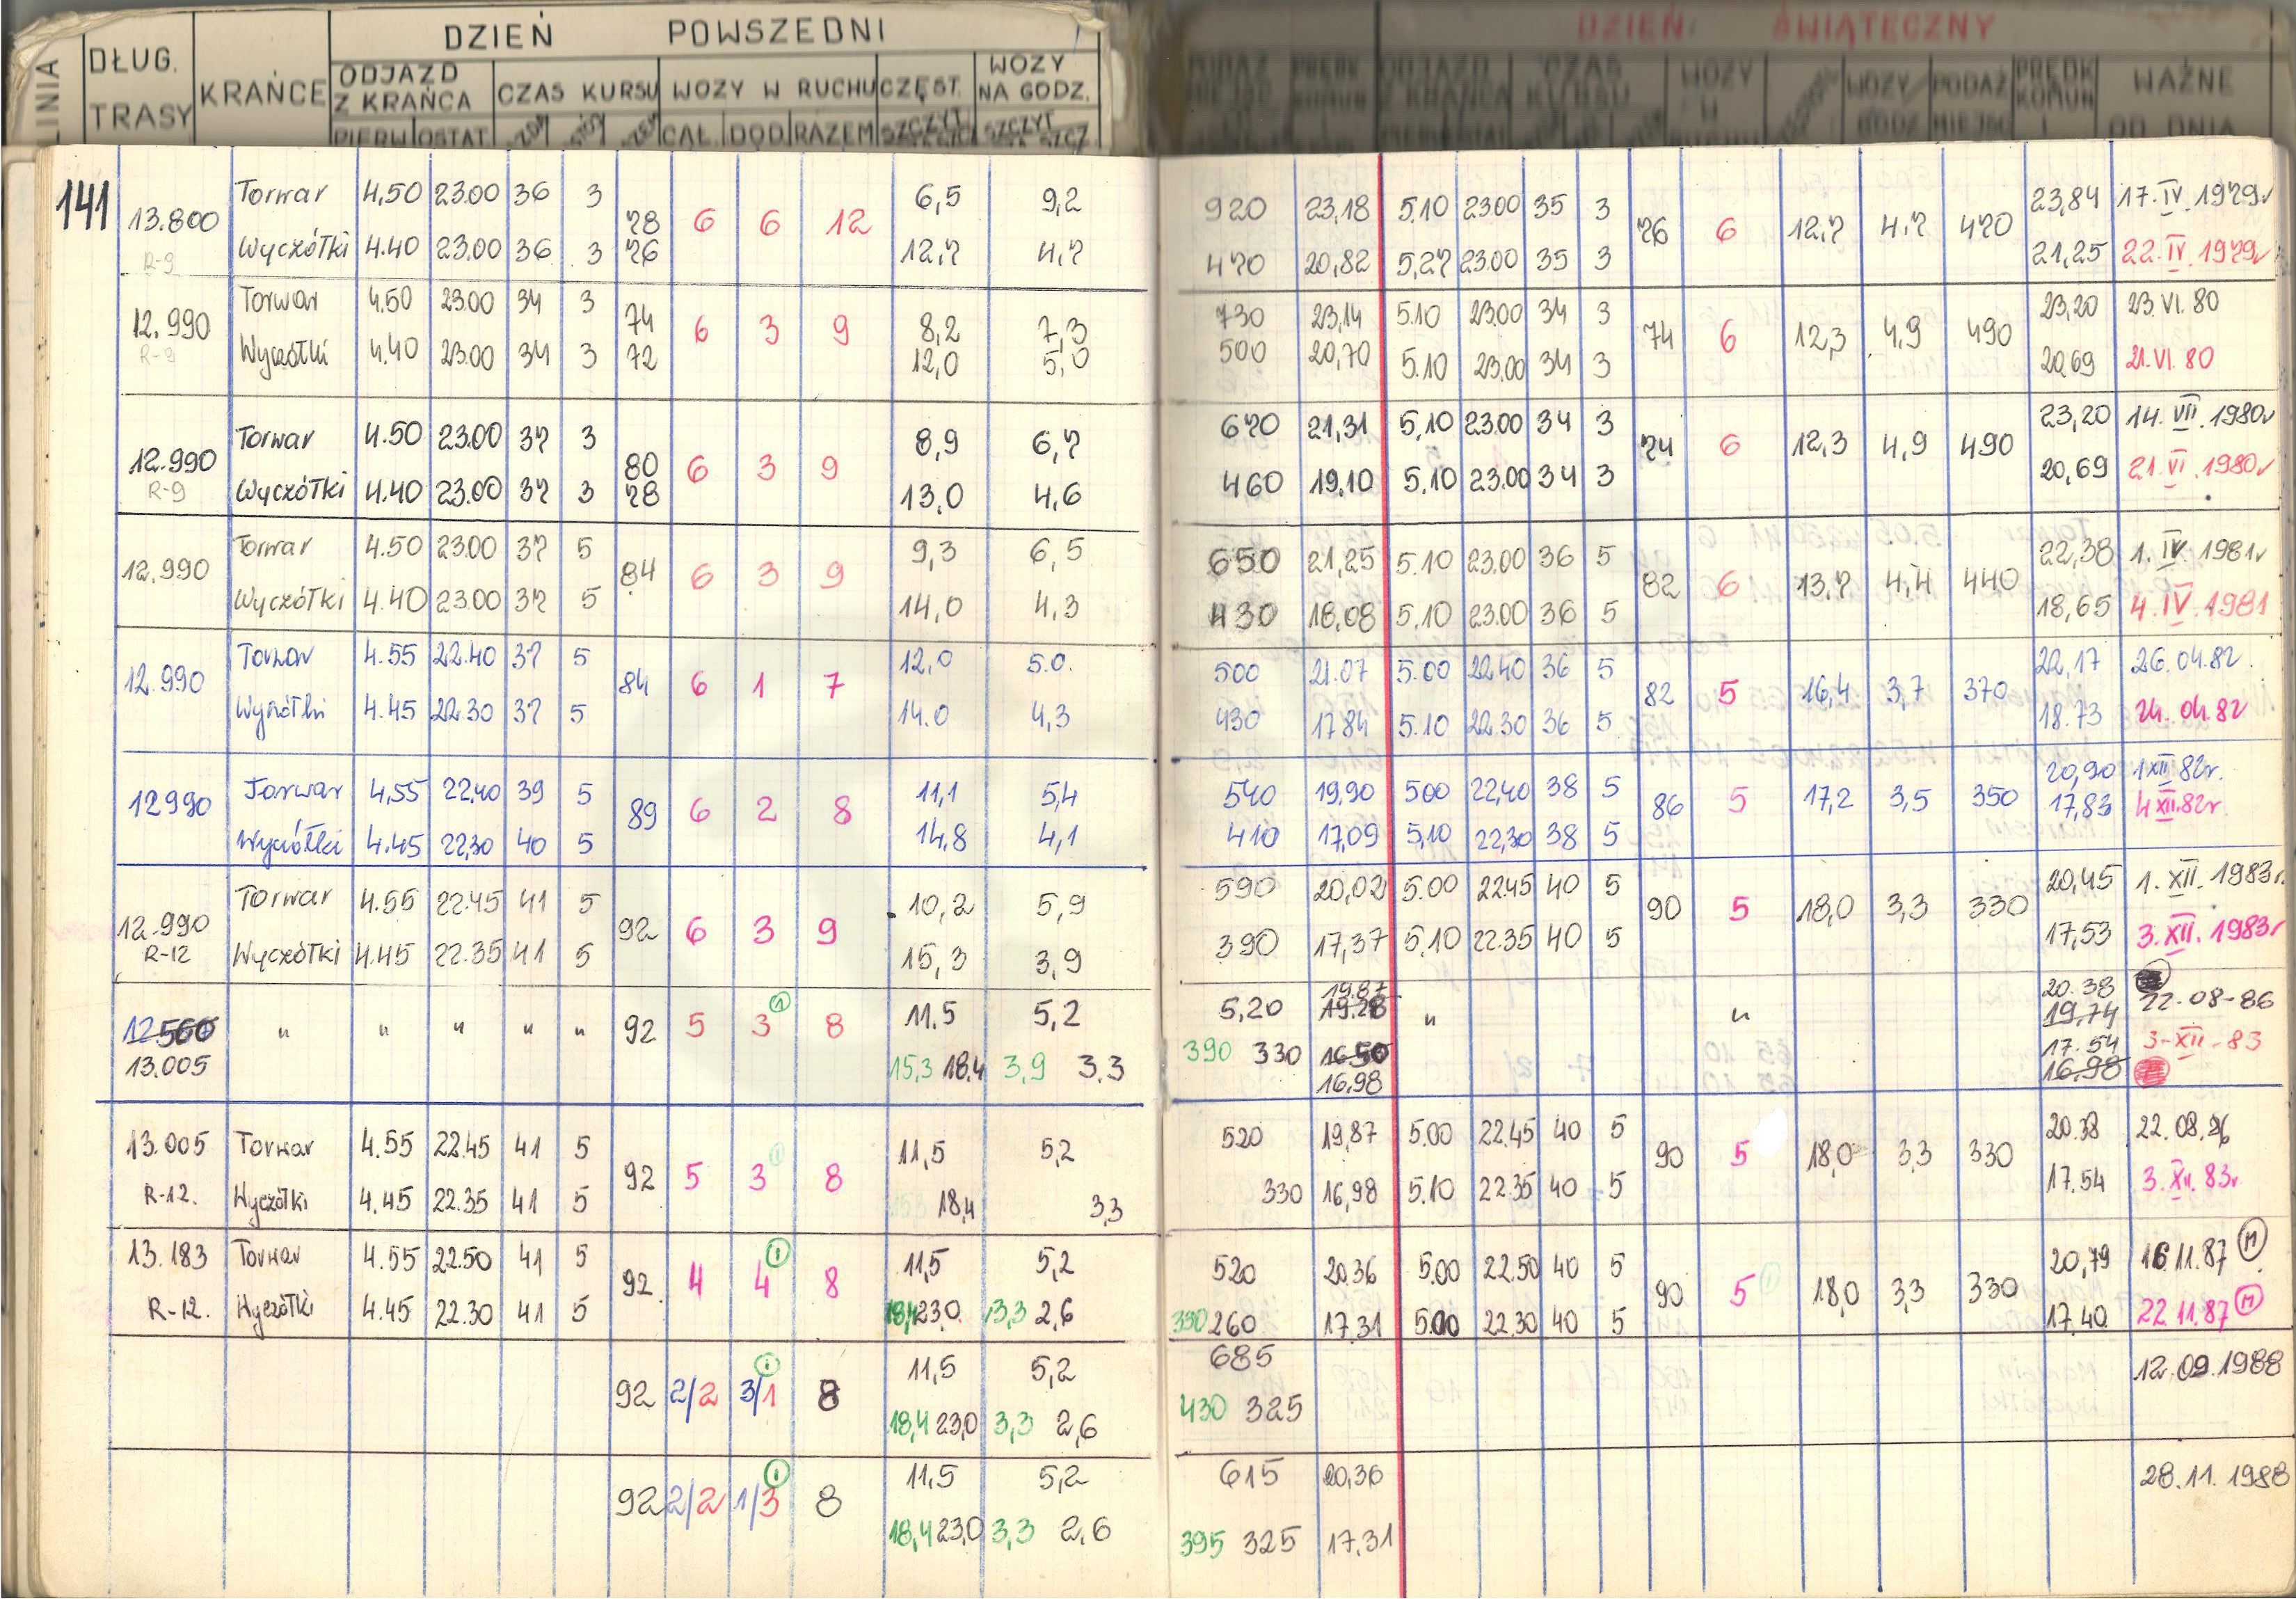 DZIEŃ POWSZEDNI DZIEŃ ŚWIĄTECZNY
LINIA DŁUG. TRASY KRAŃCE ODJAZD Z KRAŃCA CZAS KURSU WOZY W RUCHU CZĘST. WOZY NA GODZ. PODAŻ PRĘDK KOMUN ODJAZD Z KRAŃCA CZAS KURSU WOZY W RUCHU WOZY/GODZ PODAŻ MIEJSC PRĘDK KOMUN WAŻNE OD DNIA
PIERW OSTAT. CAŁ. DOD RAZEM SZCZYT SZCZYT
141 Torwar 4,50 23.00 36 3 6,5 9,2 920 23,18 5.10 23.00 35 3 23,84 17.IV.1979r
13.800 78 6 6 12 76 6 12,7 4.7 470
R-9 Wyczółki 4.40 23.00 36 3 76 12,7 4,7 470 20,82 5,27 23.00 35 3 21,25 22.IV.1979r
Torwar 4.50 23.00 34 3 730 23,14 5.10 23.00 34 3 23,20 23.VI.80
12.990 74 6 3 9 8,2 7,3 74 6 12,3 4,9 490
R-9 Wyczółki 4.40 23.00 34 3 72 12,0 5,0 500 20,70 5.10 23.00 34 3 20,69 21.VI.80
Torwar 4.50 23.00 37 3 8,9 6,7 670 21,31 5,10 23.00 34 3 23,20 14.VII.1980r
12.990 80 6 3 9 74 6 12,3 4,9 490
R-9 Wyczółki 4.40 23.00 37 3 78 13,0 4,6 460 19,10 5,10 23.00 34 3 20,69 21.VI.1980r
Torwar 4.50 23.00 37 5 9,3 6,5 650 21,25 5.10 23.00 36 5 22,38 1.IV.1981r
12.990 84 6 3 9 82 6 13,7 4,4 440
Wyczółki 4.40 23.00 37 5 14,0 4,3 430 18,08 5,10 23.00 36 5 18,65 4.IV.1981
Torwar 4.55 22.40 37 5 12,0 5.0. 500 21.07 5.00 22,40 36 5 22,17 26.04.82.
12.990 84 6 1 7 82 5 16,4 3,7 370
Wyczółki 4.45 22.30 37 5 14.0 4,3 430 17.84 5.10 22.30 36 5 18.73 24.04.82
Torwar 4,55 22,40 39 5 11,1 5,4 540 19,90 500 22,40 38 5 20,90 1XII 82r.
12990 89 6 2 8 86 5 17,2 3,5 350 17,83 4XII.82r
Wyczółki 4.45 22,30 40 5 14,8 4,1 410 17,09 5,10 22,30 38 5
Torwar 4.55 22.45 41 5 10,2 5,9 590 20,02 5.00 22.45 40 5 20,45 1.XII.1983r.
12.990 92 6 3 9 90 5 18,0 3,3 330
R-12 Wyczółki 4.45 22.35 41 5 15,3 3,9 390 17,37 5,10 22.35 40 5 17,53 3.XII.1983r
19.87 20.38
12.560 " " " " " 92 5 3 1 8 11,5 5,2 5,20 19.28 " " 19,74 22.08-86
13.005 15,3 18,4 3,9 3.3 390 330 16.50 17.54 3-XII-83
16.98 16,98
13.005 Torwar 4.55 22.45 41 5 11,5 5,2 520 19,87 5.00 22.45 40 5 20.38 22.08.86
92 5 3 1 8 90 5 18,0 3,3 330
R-12. Wyczółki 4.45 22.35 41 5 18,4 3,3 330 16,98 5.10 22.35 40 5 17.54 3.XII.83r
13.183 Torwar 4.55 22.50 41 5 11,5 5,2 520 20.36 5.00 22.50 40 5 20,79 16 11.87 M
92 4 4 1 8 90 5 1 18,0 3,3 330
R-12. Wyczółki 4.45 22.30 41 5 18,4 23,0 3,3 2,6 330 260 17.31 5.00 22,30 40 5 17.40 22 11.87 M
92 2/2 3/1 1 8 11,5 5,2 685 12.09.1988
18,4 23,0 3,3 2,6 430 325
92 2/2 1/3 1 8 11.5 5,2 615 20,36 28.11.1988
18,4 23,0 3,3 2,6 395 325 17.31